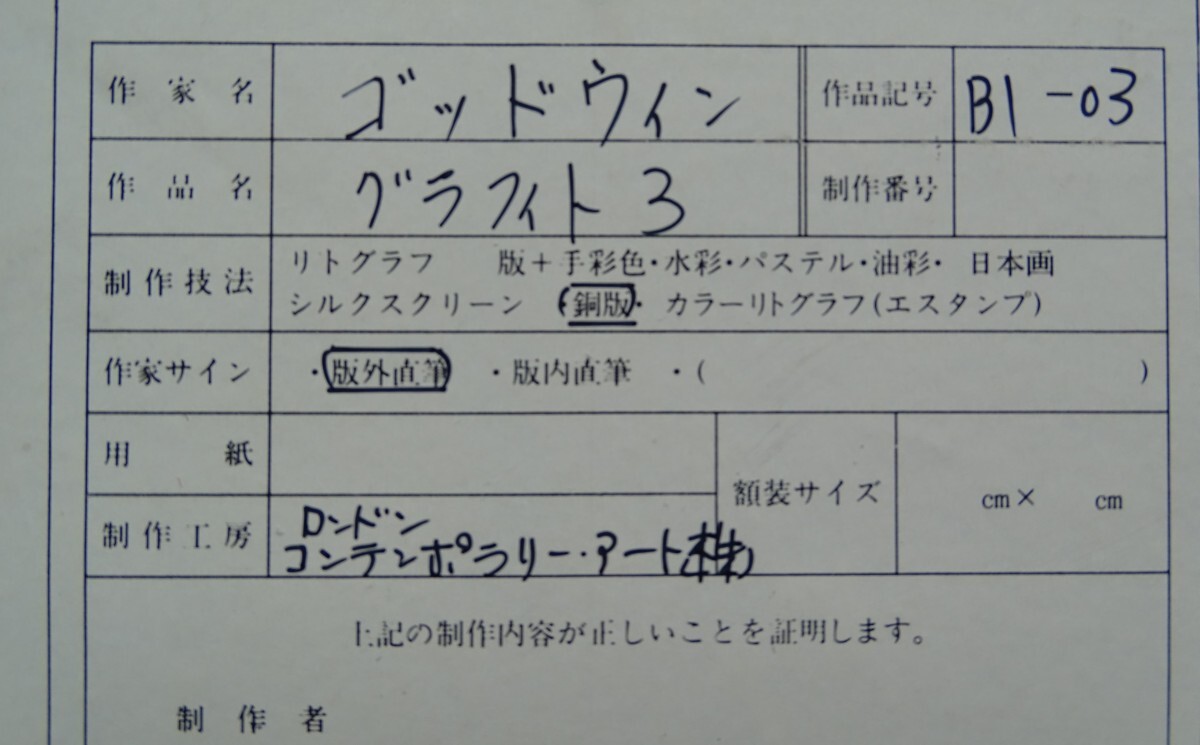 作家名 ゴッドウィン 作品記号 B1-03
作品名 グラフィト3 制作番号
制作技法 リトグラフ 版+手彩色・水彩・パステル・油彩・ 日本画
シルクスクリーン ・銅版・ カラーリトグラフ(エスタンプ)
作家サイン ・版外直筆 ・版内直筆 ・( )
用紙 額装サイズ cm× cm
制作工房 ロンドン
コンテンポラリー・アート(株)
上記の制作内容が正しいことを証明します。
制作者